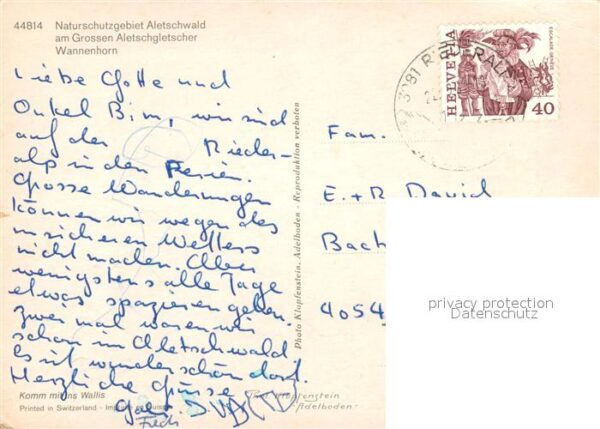 44814 Naturschutzgebiet Aletschwald
am Grossen Aletschgletscher
Wannenhorn
Liebe Gotte und
Onkel Bim, wir sind
auf der Rieder-
alp in den Ferien.
Grosse Wanderungen
können wir wegen des
unsicheren Wetters
nicht machen. Aber
wenigstens alle Tage
etwas spazieren gehen.
Zwei mal waren wir
schon im Aletschwald
Es ist wunderschön dort.
Herzliche Grüsse
Komm mit ins Wallis
Printed in Switzerland
Photo Klopfenstein, Adelboden - Reproduktion verboten
HELVETIA
ESCALADE GENÈVE
40
3981
Fam.
E. + R. David
Bach
4054
privacy protection
Datenschutz
Phot. Klopfenstein
Adelboden